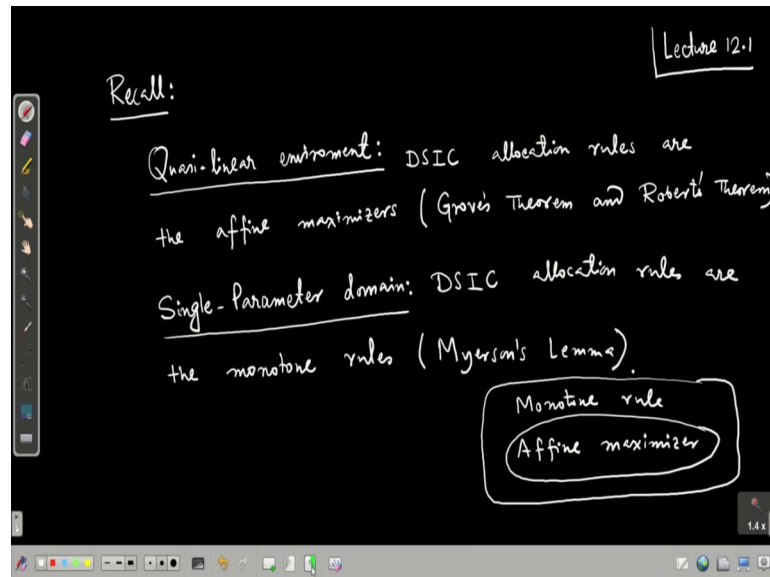 Lecture 12.1
Recall:
Quasi-linear enviroment: DSIC allocation rules are
the affine maximizers (Grove's Theorem and Robert's Theorem)
Single-Parameter domain: DSIC allocation rules are
the monotone rules (Myerson's Lemma).
Monotone rule
Affine maximizer
1.4 x